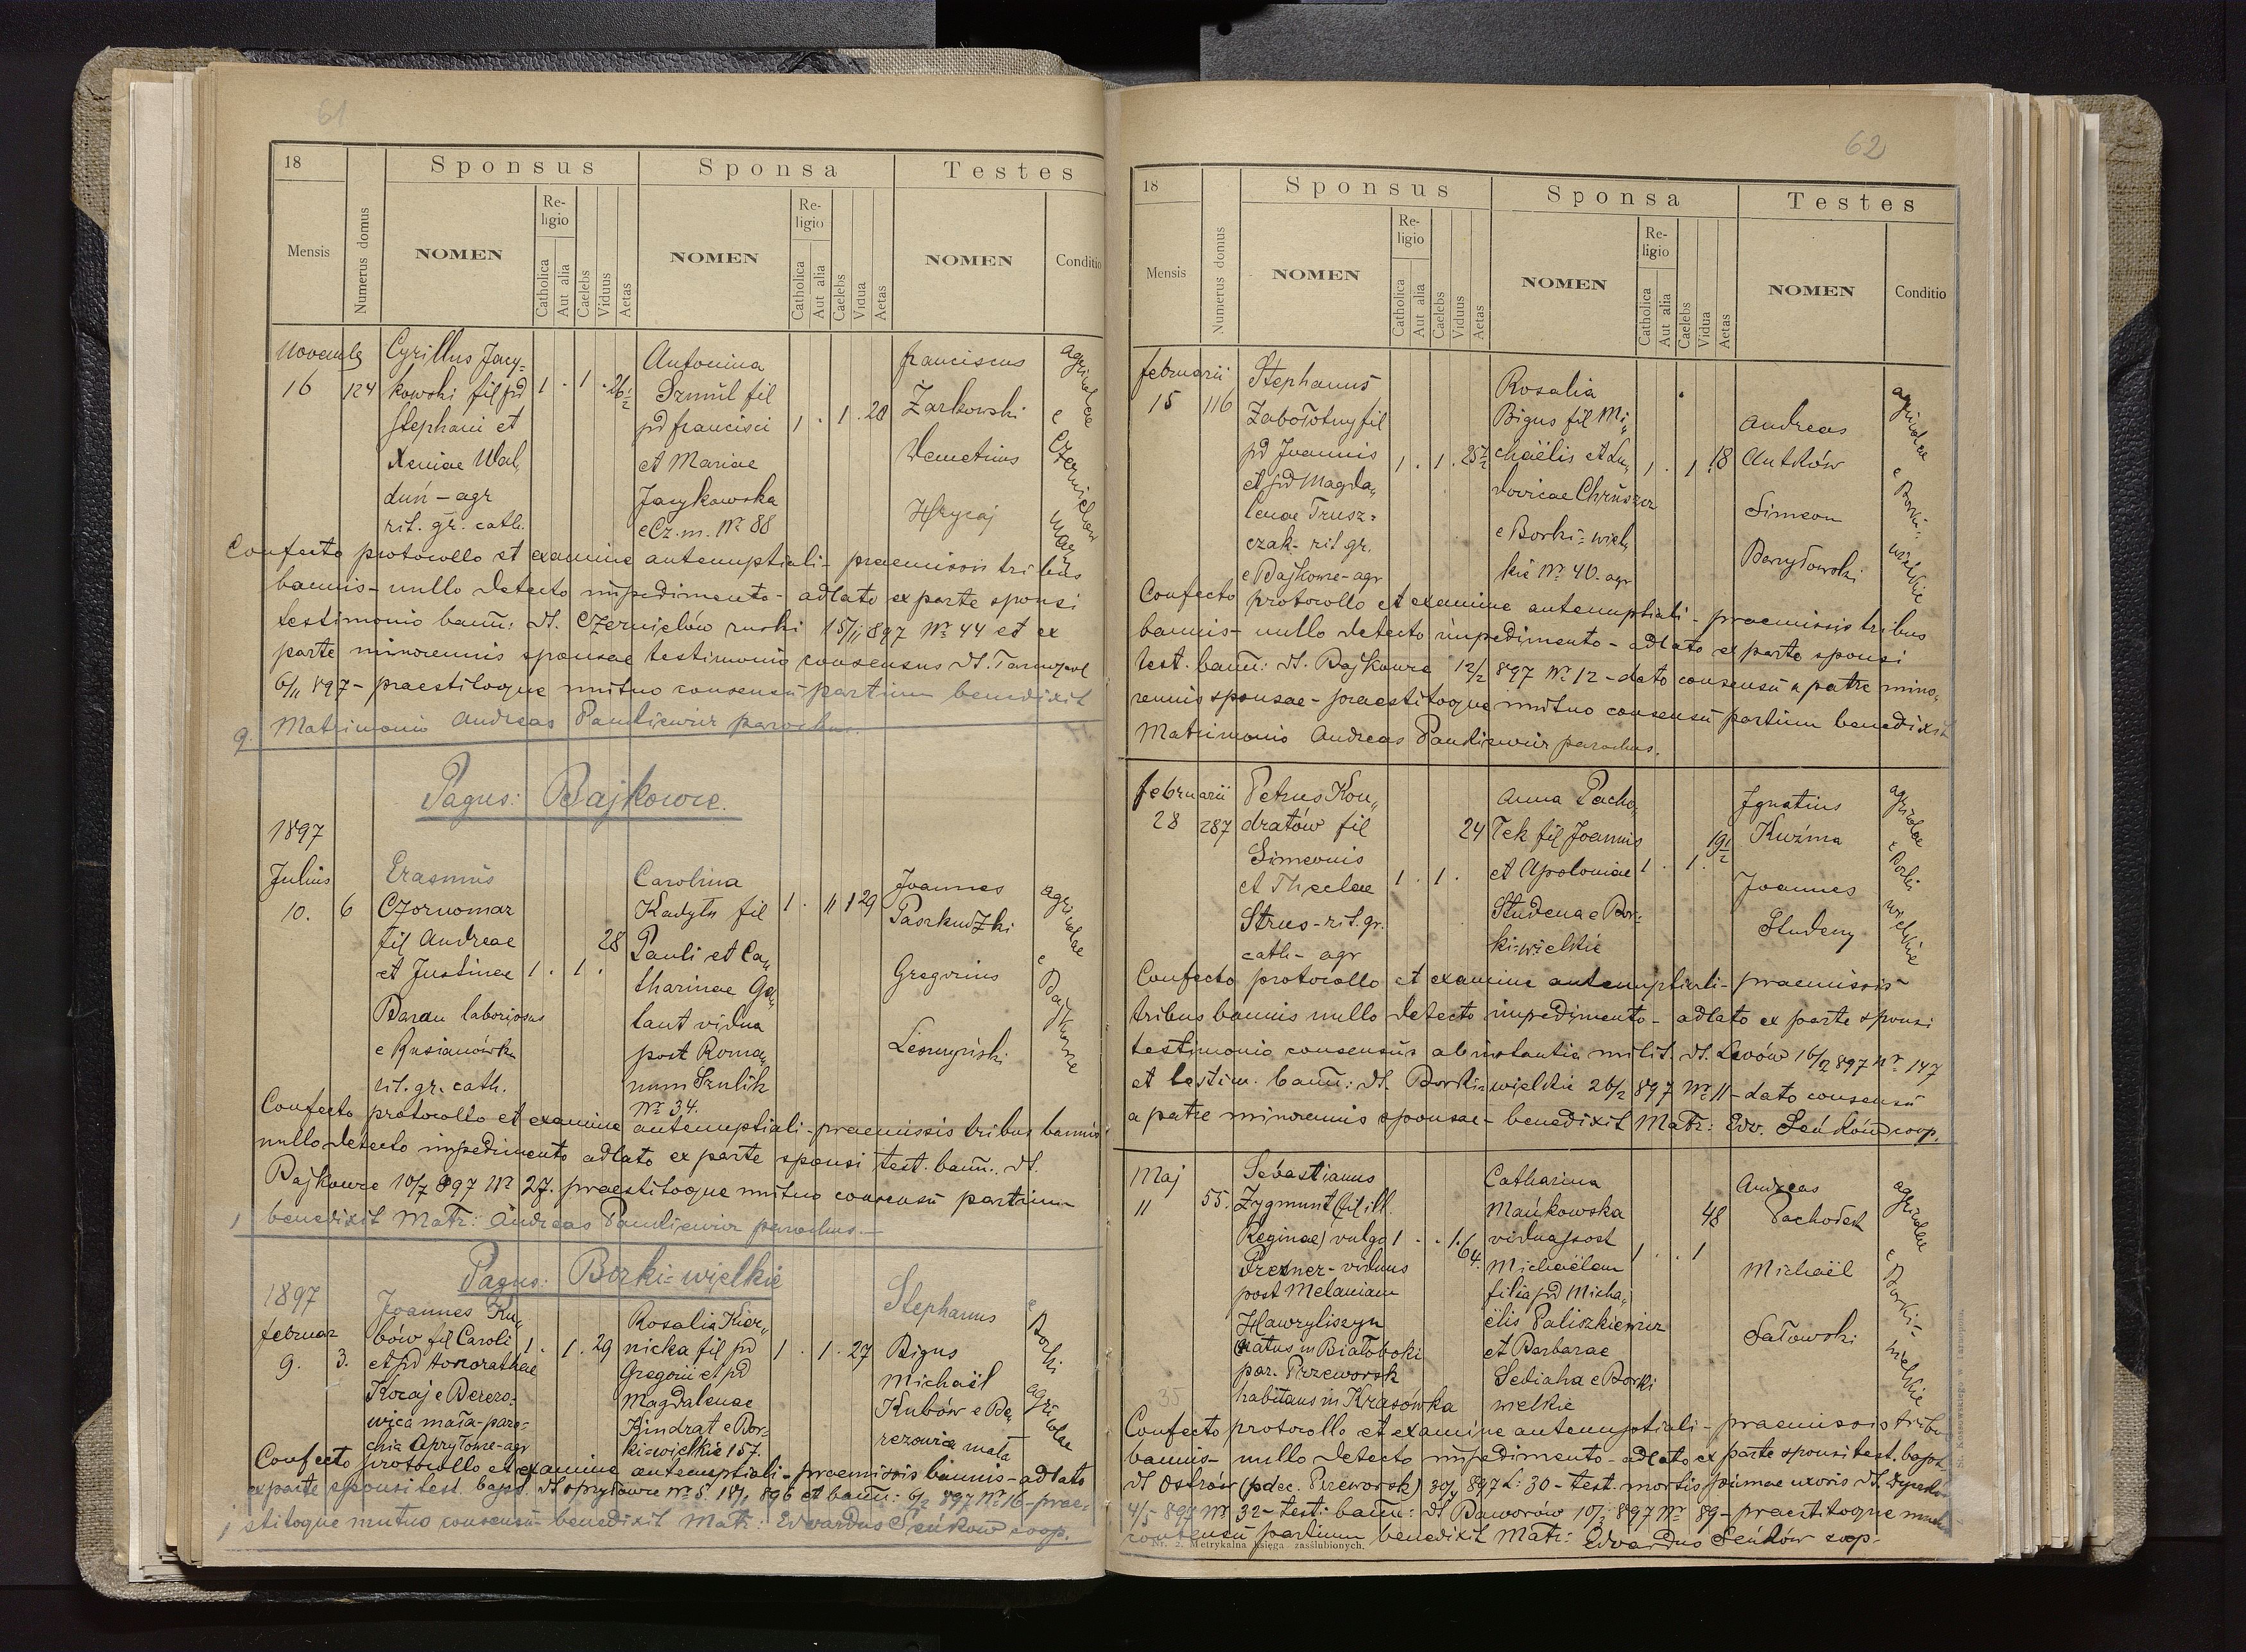 61
18
Mensis
Numerus domus
Sponsus
NOMEN
Religio
Catholica
Aut alia
Caelebs
Viduus
Aetas
Sponsa
NOMEN
Religio
Catholica
Aut alia
Caelebs
Vidua
Aetas
Testes
NOMEN
Conditio
Novembr
16
124
Cyrillus Jacy=
kowski fil pd
Stephani et
Xeniae Wal„
duń - agr
rit. gr. cath.
1 . 1 . 26 1/2
Antonina
Szmul fil
pd Francisci
et Mariae
Jacykowska
e Cz. m. Nr 88
1 . 1 . 20
Franciscus
Żarkowski
Demetrius
Hrycaj
agricolae
e
Czernielow
maz
Confecto protocollo et examine antenuptiali - praemissis tribus
bannis - nullo detecto impedimento - adlato ex parte sponsi
testimonio bann: dt. Czernielów ruski 15/11 897 Nr 44 et ex
parte minorennis sponsae testimonio consensus dt. Tarnopol
6/11 897 - praestitoque mutuo consensu partium benedixit
9. Matrimonio Andreas Pankiewicz parochus.
Pagus: Bajkowce.
1897
Julius
10.
6
Erasmus
Czornomaz
fil Andreae
et Justinae
Baran laboriosus
e Rusianówka
rit. gr. cath.
1 . 1 . 28
Carolina
Kadyla fil
Pauli et Ca„
tharinae Ga„
laut vidua
post Roma„
num Szulik
Nr 34.
1 . 1 29
Joannes
Paszkudzki
Gregorius
agricolae
e
Bajkowce
Confecto protocollo et examine antenuptiali - praemissis tribus bannis
nullo detecto impedimento adlato ex parte sponsi test. bann.. dt.
Bajkowce 10/7 897 Nr 27. praestitoque mutuo consensu partium
1 benedixit Matr: Andreas Pankiewicz parochus. -
Pagus: Borki=wielkie
1897
Februar
9.
3.
Joannes Ku„
bów fil Caroli
et pd Honorathae
Kocaj e Berezo=
wica mała - paro=
chia Opryłowce - agr
1 . 1 . 29
Rosalia Kier„
nicka fil pd
Gregorii et pd
Magdalenae
Kindrat e Bor=
ki=wielkie 157.
1 . 1 . 27
Stephanus
Bigus
Michaël
Kubów e Be„
rezowica mała
e Borki
agricolae
Confecto protocollo et examine antenuptiali - praemissis bannis - adlato
ex parte sponsi test. bapt. dt Opryłowce Nr 5. 18/1 896 et bann: 6/2 897 Nr 16 - prae„
1 stitoque mutuo consensu - benedixit Matr: Edvardus Seńków coop.
62
18
Mensis
Numerus domus
Sponsus
NOMEN
Religio
Catholica
Aut alia
Caelebs
Viduus
Aetas
Sponsa
NOMEN
Religio
Catholica
Aut alia
Caelebs
Vidua
Aetas
Testes
NOMEN
Conditio
Februarii
15
116
Stephanus
Zabołotny fil
pd Joannis
et pd Magda„
lenae Trusz=
czak - rit gr.
e Bajkowce - agr
1 . 1 . 25 1/2
Rosalia
Bigus fil Mi„
chaëlis et Lu„
dovicae Chruszcz
e Borki=wiel„
kie Nr 40 - agr
1 . 1 18
Andreas
Antków
Simeon
Baryłowski
agricolae
e Borki=
wielkie
Confecto protocollo et examine antenuptiali - praemissis tribus
bannis - nullo detecto impedimento - adlato ex parte sponsi
test. bann: dt. Bajkowce 12/2 897 Nr 12 - dato consensu a patre mino„
rennis sponsae - praestitoque mutuo consensu partium benedixit
Matrimonio Andreas Pankiewicz parochus.
Februarii
28
287
Petrus Kon„
dratów fil
Simeonis
et Theclae
Strus - rit. gr.
cath - agr
1 . 1 . 24
Anna Pacho„
łek fil Joannis
et Apoloniae
Studena e Bor=
ki=wielkie
1 . 1 . 19 1/2
Ignatius
Kuźma
Joannes
Studeny
agricolae
e Borki
wielkie
Confecto protocollo et examine antenuptiali - praemissis
tribus bannis nullo detecto impedimento - adlato ex parte sponsi
testimonio consensus ab instantia milit. dt. Lwów 16/2 897 Nr 147
et testim. bann: dt. Borki=wielkie 26/2 897 Nr 11 - dato consensu
a patre minorennis sponsae - benedixit Matr: Edv. Seńków coop.
Maj
11
55.
Sebastianus
Zygmunt (fil ill.
Reginae) vulgo
Prexner - viduus
post Melaniam
Hawryliszyn
natus in Białoboki
par. Przeworsk
habitans in Krasówka
1 . . 1 . 64.
Catharina
Mańkowska
vidua post
Michaëlem
filia pd Micha„
ëlis Paliszkiewicz
et Barbarae
Sediaha e Borki
wielkie
1 . . 1 48
Andreas
Pachołek
Michaël
Sałowski
agricolae
e Borki=
wielkie
35
Confecto protocollo et examine antenuptiali - praemissis tribus
bannis - nullo detecto impedimento - adlato ex parte sponsi test. bapt
dt Ostrów (pdec. Przeworsk) 30/4 897 L: 30 - test. mortis primae uxoris dt.
4/5 897 Nr 32 - test: bann: dt Baworów 10/5 897 Nr 89 - praestitoque mutuo
consensu partium benedixit Matr: Edvardus Seńków coop.
Nr. 2. Metrykalna księga zaślubionych.